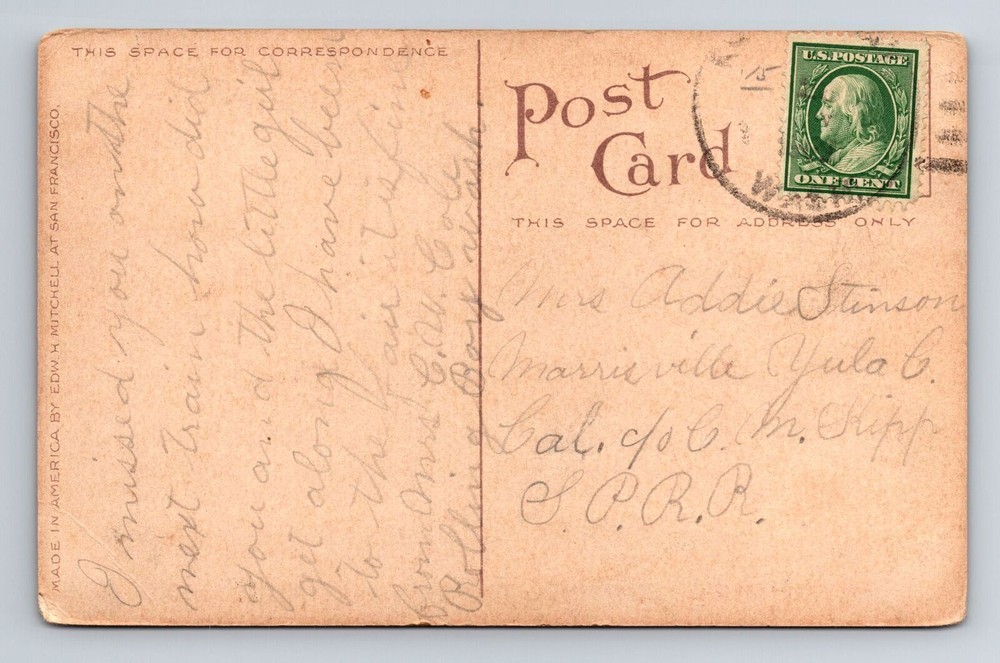 THIS SPACE FOR CORRESPONDENCE
MADE IN AMERICA BY EDW. H. MITCHELL AT SAN FRANCISCO.
I missed you on the
next train how did
you and the little girl
get along I have been
to the fair its fine
From Mrs C.W. Cole
Rolling Bay Wash
Post
Card
THIS SPACE FOR ADDRESS ONLY
U.S. POSTAGE
ONE CENT
15
WASH
Mrs Addie Stinson
Marrisville Yula C.
Cal. c/o C. M. Kipp
S. P. R. R.